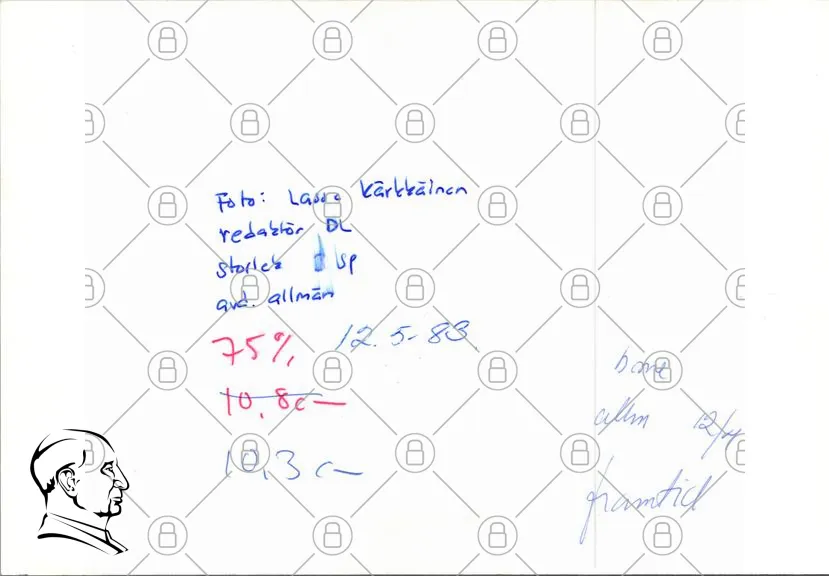 Foto: Lasse Kärkkäinen
redaktör DL
storlek sp
avd. allmän
75%
12.5-83
10,8c
10,3 c
allm 12/4
framtid